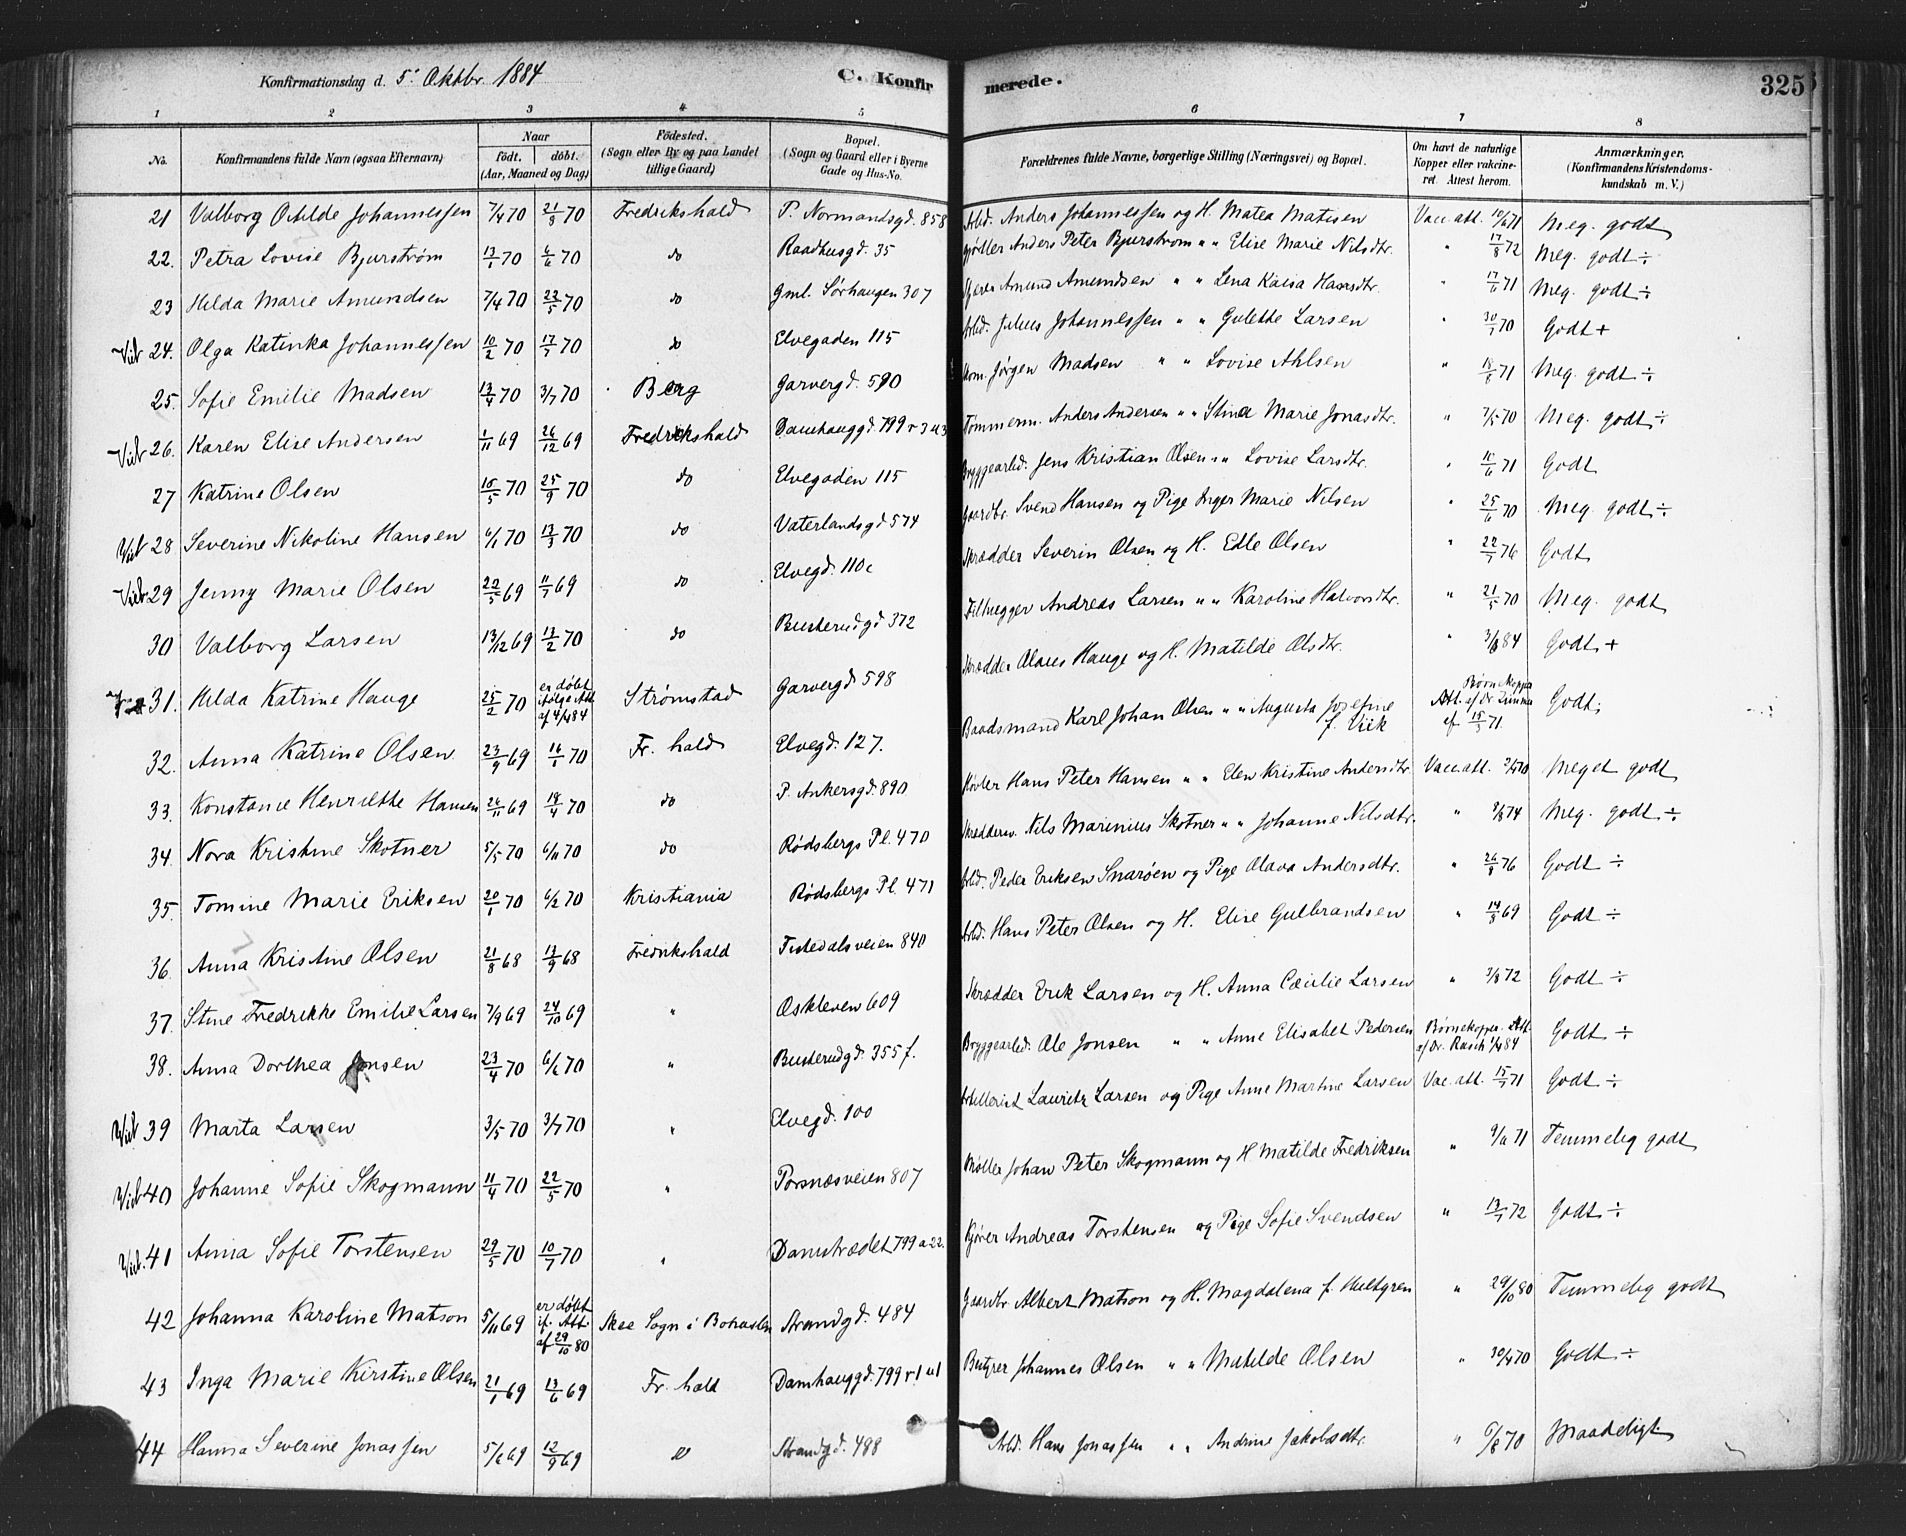 Konfirmationsdag d. 5' Oktbr. 1884 C. Konfirmerede. 325
1 2 3 4 5 6 7 8
No. Konfirmandens fulde Navn (ogsaa Efternavn) Naar født. døbt. (Aar, Maaned og Dag) Fødested. (Sogn eller By og paa Landet tillige Gaard) Bopæl. (Sogn og Gaard eller i Byerne Gade og Hus-No. Forældrenes fulde Navne, borgerlige Stilling (Næringsvei) og Bopæl. Om havt de naturlige Kopper eller vakcineret. Attest herom. Anmærkninger. (Konfirmandens Kristendomskundskab m. V.)
21 Valborg Otilde Johannessen 7/4 70 21/8 70 Fredrikshald P. Normandsgd. 858 Arbd. Anders Johannessen og H. Matea Matisen Vac. att. 10/6 71 Meg. godt
22. Petra Lovise Bjurstrøm 13/1 70 6/6 70 do Raadhusgd. 35 Anders Peter Bjurstrøm " " Elise Marie Nilsdtr. " 17/8 72 Meg. godt ÷
23 Hilda Marie Amundsen 7/4 70 22/5 70 do Gml. Sørhaugen 307 Amund Amundsen " " Lena Kaisa Hansdtr. " 17/6 71 Meg. godt ÷
24. Olga Katinka Johannessen 10/2 70 17/7 70 do Elvegaden 115 Arbd. Julius Johannessen " " Gulette Larsen " 30/7 70 Godt +
25. Sofie Emilie Madsen 13/4 70 3/7 70 Berg Garvergd. 590 Jørgen Madsen " " Lovise Ahlsen " 18/8 71 Meg. godt ÷
26. Karen Elise Andersen 1/11 69 26/12 69 Fredrikshald Damhauggd. 799 Tømmerm. Anders Andersen " " Stina Marie Jonasdtr. " 7/5 70 Meg. godt ÷
27 Katrine Olsen 15/5 70 25/9 70 do Elvegaden 115 Bryggearbd. Jens Kristian Olsen " " Lovise Larsdtr. " 10/6 71 Godt
28 Severine Nikoline Hansen 6/1 70 13/3 70 do Vaterlandsgd 574 Gaardbr. Svend Hansen og Pige Inger Marie Nilsen " 25/6 70 Meg. godt ÷
29 Jenny Marie Olsen 22/5 69 11/7 69 do Elvegd. 110c Skrædder Severin Olsen og H. Edle Olsen " 22/7 76 Godt
30 Valborg Larsen 13/12 69 13/2 70 do Busterudgd 372 Filhugger Andreas Larsen " " Karoline Halvorsdtr. " 21/5 70 Meg. godt
31. Hilda Katrine Hauge 25/2 70 er døbt ifølge Att. af 4/4 84 Strømstad Garvergd 598 Skrædder Olaus Hauge og H. Matilde Olsdtr. " 3/8 84 Godt +
32. Anna Katrine Olsen 23/9 69 16/1 70 Fr. hald Elvegd. 127. Baadsmand Karl Johan Olsen " " Augusta Josefine f. Viik Børnekopper Att. af Dr. af 15/3 71 Godt
33. Konstanse Henriette Hansen 26/11 69 18/4 70 do P. Ankersgd. 890 Høvler Hans Peter Hansen " " Elen Kristine Andersdtr Vac. att. 70 Meget godt
34. Nora Kristine Skotner 5/5 70 6/11 70 do Rødsbergs Pl. 470 Nils Marinius Skotner " " Johanne Nilsdtr. " 74 Meg. godt ÷
35. Tomine Marie Eriksen 20/1 70 6/2 70 Kristiania Rødsbergs Pl. 471 Arbd. Peder Eriksen Snarøen og Pige Olava Andersdtr. " 26/8 76 Godt ÷
36. Anna Kristine Olsen 21/8 68 13/9 68 Fredrikshald Tistedalsveien 840 Arbd. Hans Peter Olsen og H. Elise Gulbrandsen " 14/8 69 Godt ÷
37. Stine Fredrikke Emilie Larsen 7/9 69 24/10 69 " Oskleven 609 Skrædder Erik Larsen og H. Anna Cæcilie Larsen " 3/8 72 Godt ÷
38. Anna Dorthea Jonsen 23/4 70 6/6 70 " Busterudgd. 355 f. Bryggearbd. Ole Jonsen " " Anne Elisabet Pedersen Børnekopper Att. af Dr. Rasch 1/4 84 Godt ÷
39 Marta Larsen 3/5 70 3/7 70 " Elvegd. 100 Artillerist Lauritz Larsen og Pige Anne Martine Larsen Vac. att. 15/7 71 Godt ÷
40 Johanne Sofie Skogmann 11/4 70 22/5 70 " Torsnæsveien 807 Møller Johan Peter Skogmann og H Matilde Fredriksen " 9/6 71 Temmelig godt
41 Anna Sofie Torstensen 29/5 70 10/7 70 " Damstrædet 799 a 22. Kjører Andreas Torstensen og Pige Sofie Svendsen " 13/7 72 Godt ÷
42 Johanna Karoline Matson 5/11 69 er døbt if. Att. af 29/10 80 Skee Sogn i Bohuslen Strandgd. 484 Gaardbr. Albert Matson og H. Magdalena f. Hultgren " 29/10 80 Temmelig godt
43 Inga Marie Kirstine Olsen 21/1 69 13/6 69 Fr. hald Damhauggd. 799 Johannes Olsen " " Matilde Olsen " 70 Godt ÷
44 Hanna Severine Jonassen 5/6 69 12/9 69 do Strandgd. 488 Arbd. Hans Jonassen " " Andrine Jakobsdtr. " 70 Maadeligt